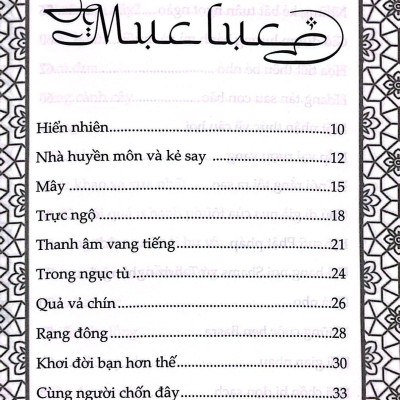 Mục lục
Hiển nhiên 10
Nhà huyền môn và kẻ say 12
Mây 15
Trực ngộ 18
Thanh âm vang tiếng 21
Trong ngục tù 24
Quả vả chín 26
Rạng đông 28
Khơi đời bạn hơn thế 30
Cùng người chốn đây 33